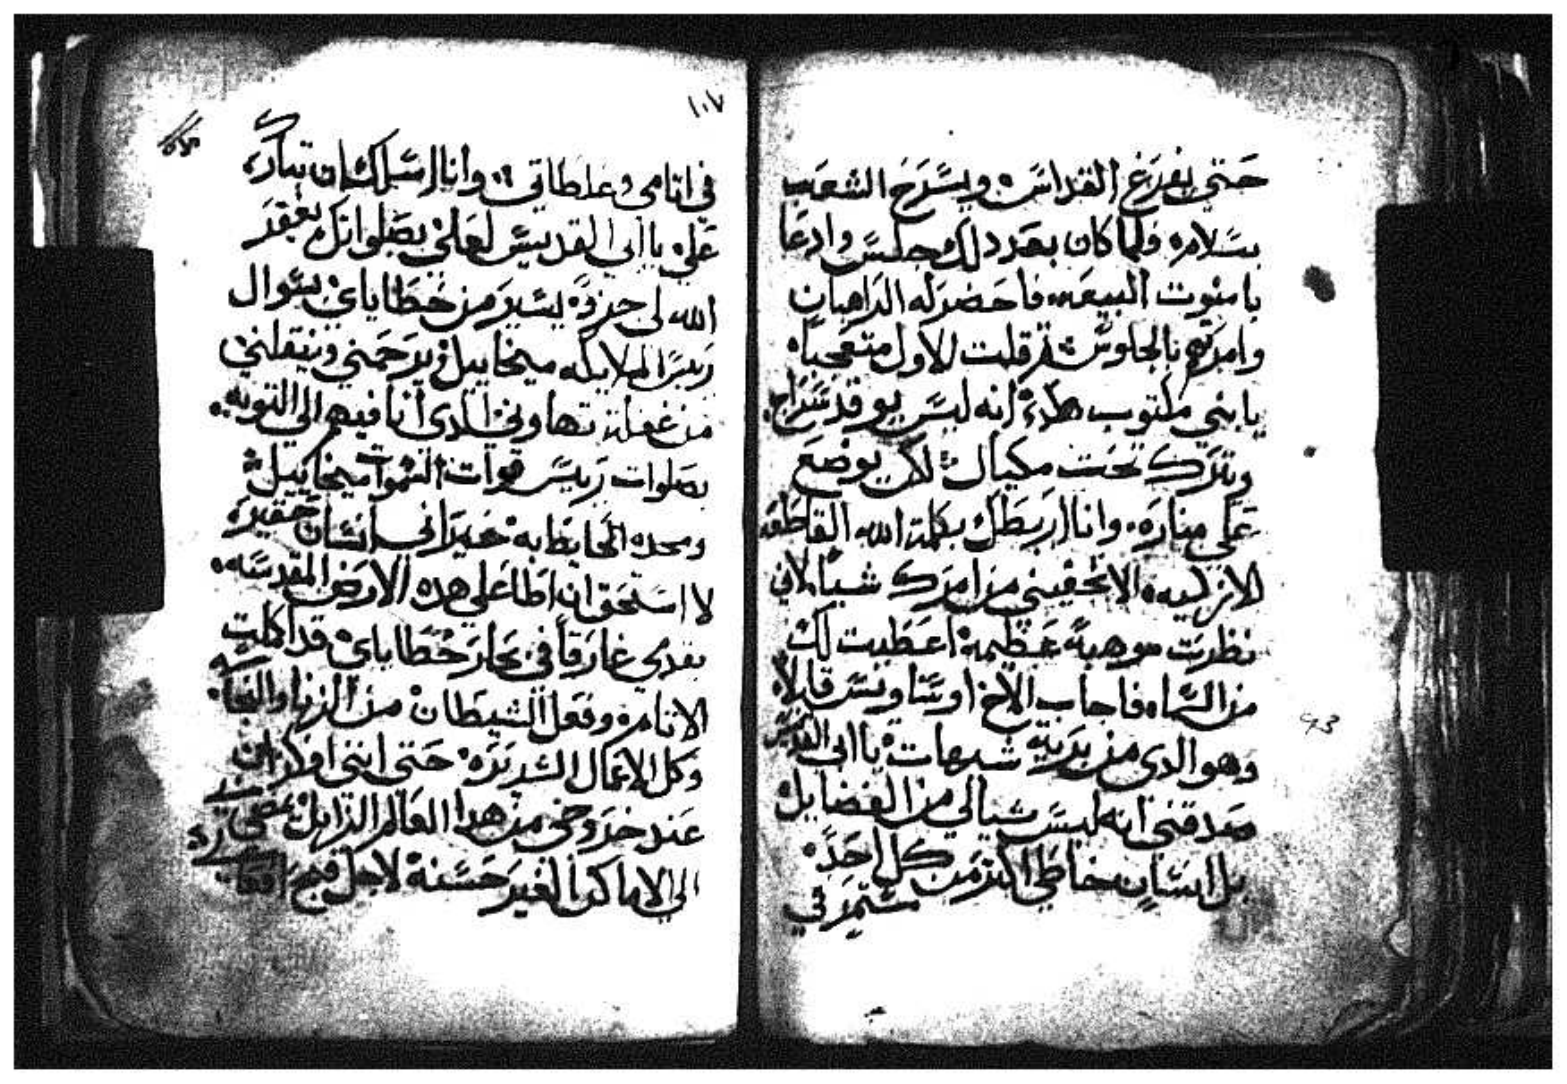 حتي يفرغ القداس ويسرح الشعب
بسلامه ولما كان بعد دلك جلس وادعا
بامنوت البيعه فاحضر له الراهبان
وامرتهم بالجلوس ثم قلت للاول متعجباً
يابني مكتوب هكدى انه ليس يوقد سراج
ويترك تحت مكيال لكن يوضع
علي مناره وانا اربطك بكلمة الله القاطعه
الازليه الا تخفيني من امرك شيا لاني
نظرت موهبه عظيمه اعطيت لك
من السما فاجاب الاخ قايلاً
وهو الدي من يا ابي القديس
صدقني انه ليس شيا لي من الفضايل
بل انسان خاطي اكثر من كل احد
مستمر في
١٠٧
في اثامي وغلطاتي وانا اسلك ان تبارك
علي يا ابي القديس لعلي بصلواتك يغفر
الله لي جزو يسير من خطاياي بسوال
ريس الملايكه ميخاييل يرحمني وينقلني
من غفلة تهاوني الدي انا فيهم الي التوبه
بصلوات ريس قوات السموات ميخاييل
ومجده المحايطا به خير اني انسان حقير
لا استحق ان اطا علي هده الارض المقدسه
بقدمي غارقاً في بحار خطاياي قد اكلت
الاثام وفعل الشيطان من الزنا والنجاسه
وكل الاعمال الشريره حتي انني اوكد ان
عند خروجي من هدا العالم الزايل
الي الاماكن الغير حسنه لاجل قبح افعالي